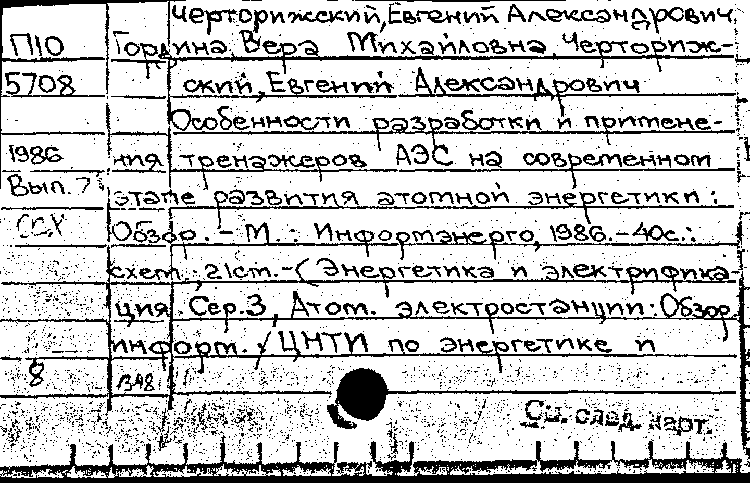 Черторижский, Евгений Александрович.
П10 Гордина, Вера Михайловна, Черториж-
5708 ский, Евгений Александрович
Особенности разработки и примене-
1986 ния тренажеров АЭС на современном
Вып. 7 этапе развития атомной энергетики :
ССХ Обзор. – М. : Информэнерго, 1986. – 40с. :
схем.; 21см. – (Энергетика и электрифика-
ция. Сер. 3, Атом. электростанции: Обзор.
информ. / ЦНТИ по энергетике и
8
См. след. карт.